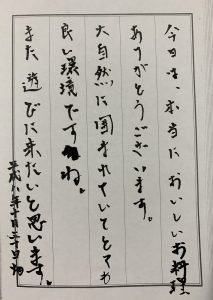 今日は、本当においしいお料理
ありがとうございます。
大自然に囲まれていてとても
良い環境ですね。
また遊びに来たいと思います。
平成八年十月二十日